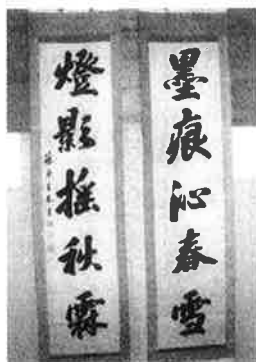 墨痕沁春雪
燈影摇秋霖